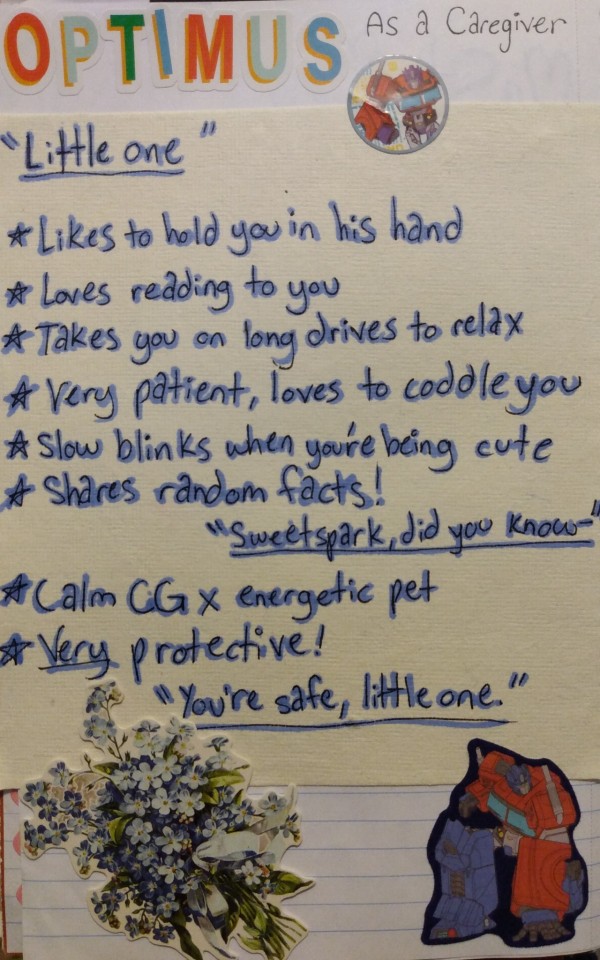 OPTIMUS As a Caregiver
"Little one"
☆ Likes to hold you in his hand
☆ Loves reading to you
☆ Takes you on long drives to relax
☆ Very patient, loves to coddle you
☆ Slow blinks when you're being cute
☆ Shares random facts!
"Sweetspark, did you know-"
☆ Calm CG x energetic pet
☆ Very protective!
"You're safe, little one."